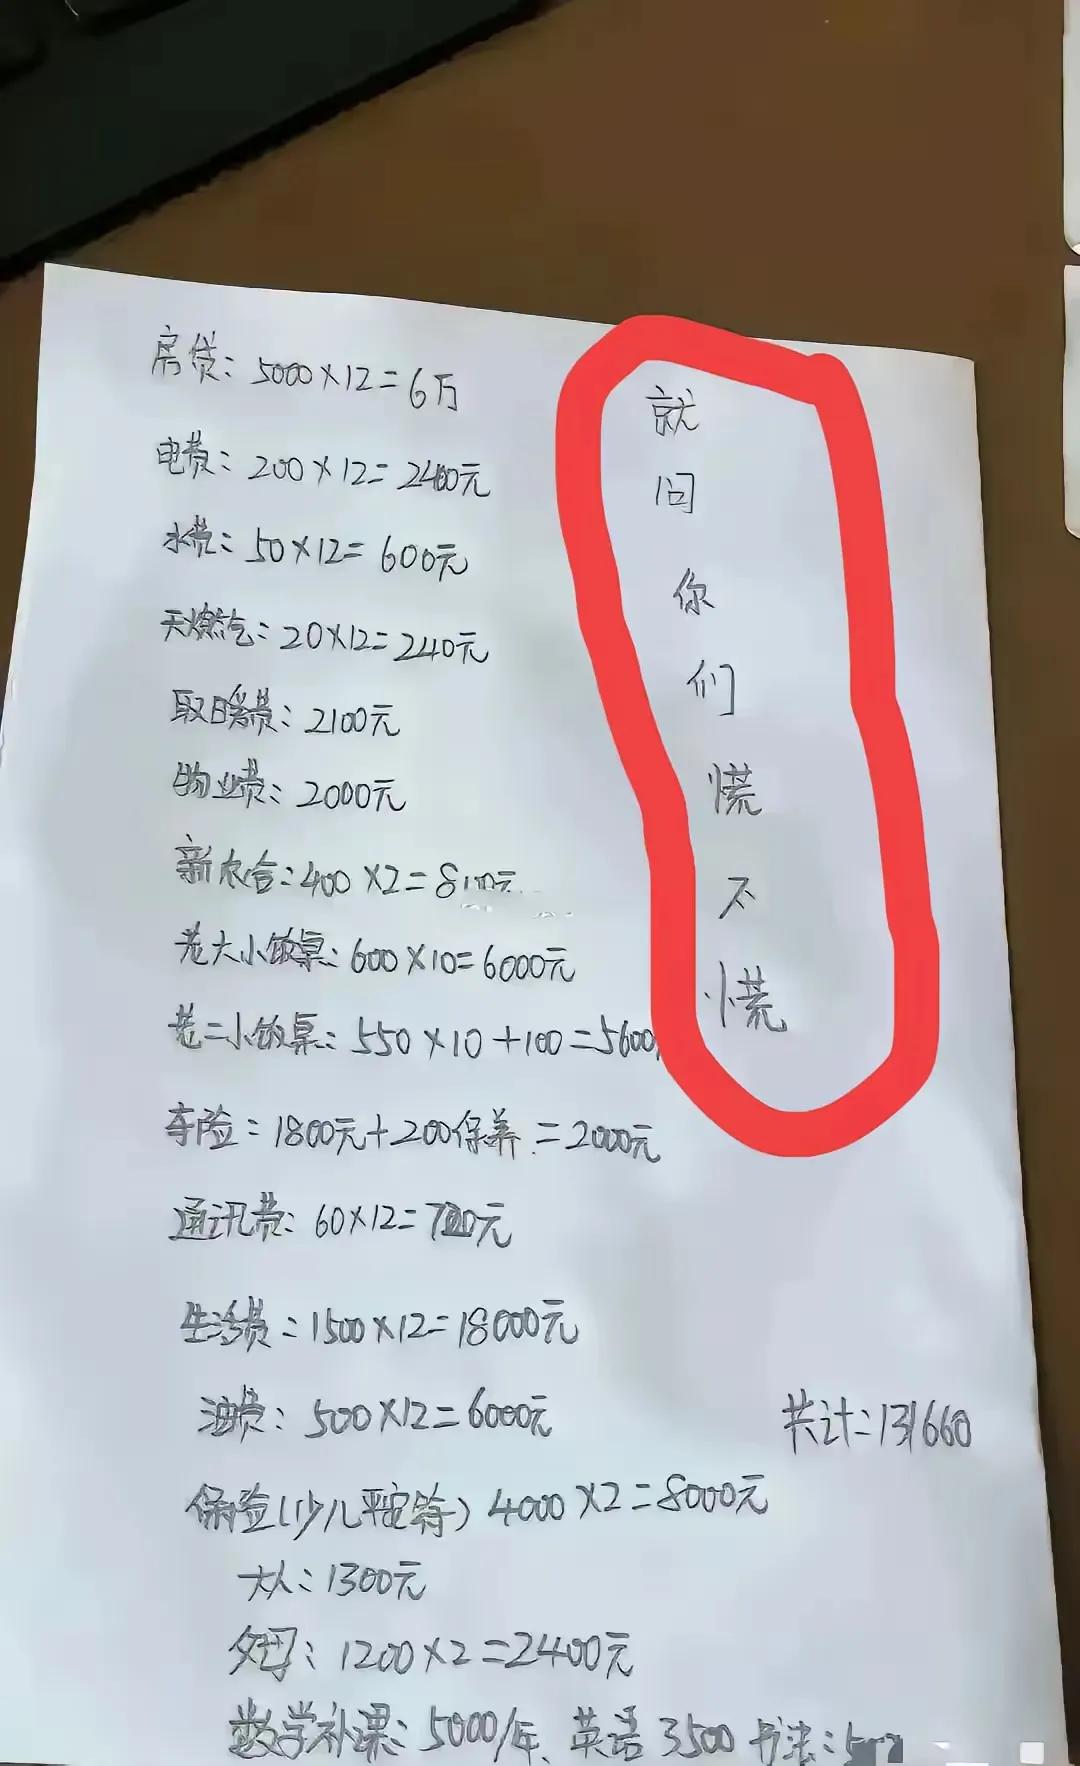 房贷：5000×12=6万
电费：200×12=2400元
水费：50×12=600元
天燃气：20×12=240元
取暖费：2100元
物业费：2000元
新农合：400×2=800元
老大小饭桌：600×10=6000元
老二小饭桌：550×10+100=5600
车险：1800元+200保养=2000元
通讯费：60×12=720元
生活费：1500×12=18000元
油费：500×12=6000元
保险(少儿平安符)4000×2=8000元
大人：1300元
父母：1200×2=2400元
数学补课：5000/年、英语3500 书法：
就问你们慌不慌
共计：131660